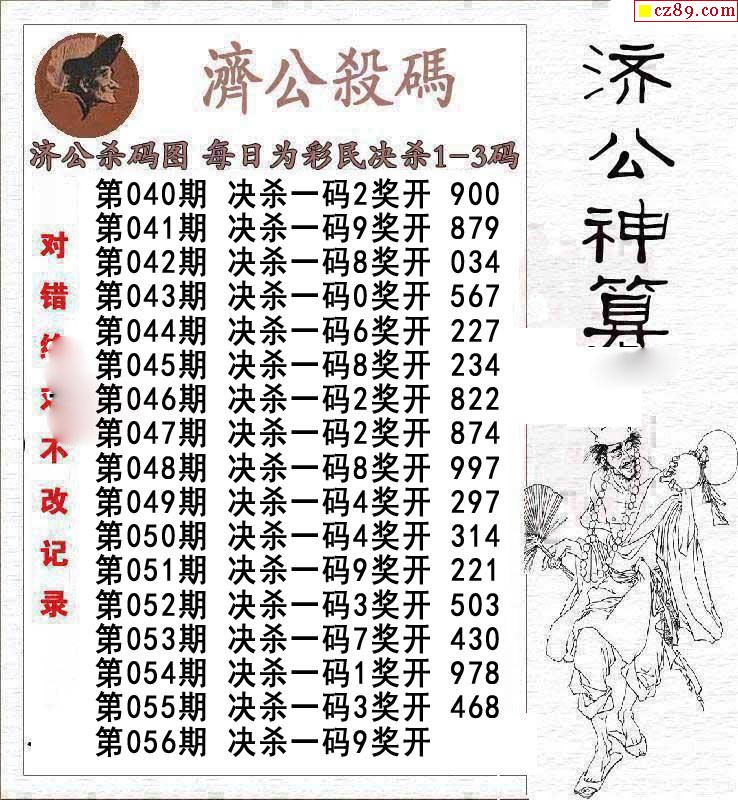 cz89.com
濟公殺碼
济公杀码图 每日为彩民决杀1-3码
第040期 决杀一码2奖开 900
第041期 决杀一码9奖开 879
第042期 决杀一码8奖开 034
第043期 决杀一码0奖开 567
第044期 决杀一码6奖开 227
第045期 决杀一码8奖开 234
第046期 决杀一码2奖开 822
第047期 决杀一码2奖开 874
第048期 决杀一码8奖开 997
第049期 决杀一码4奖开 297
第050期 决杀一码4奖开 314
第051期 决杀一码9奖开 221
第052期 决杀一码3奖开 503
第053期 决杀一码7奖开 430
第054期 决杀一码1奖开 978
第055期 决杀一码3奖开 468
第056期 决杀一码9奖开
对错不改记录
济公神算